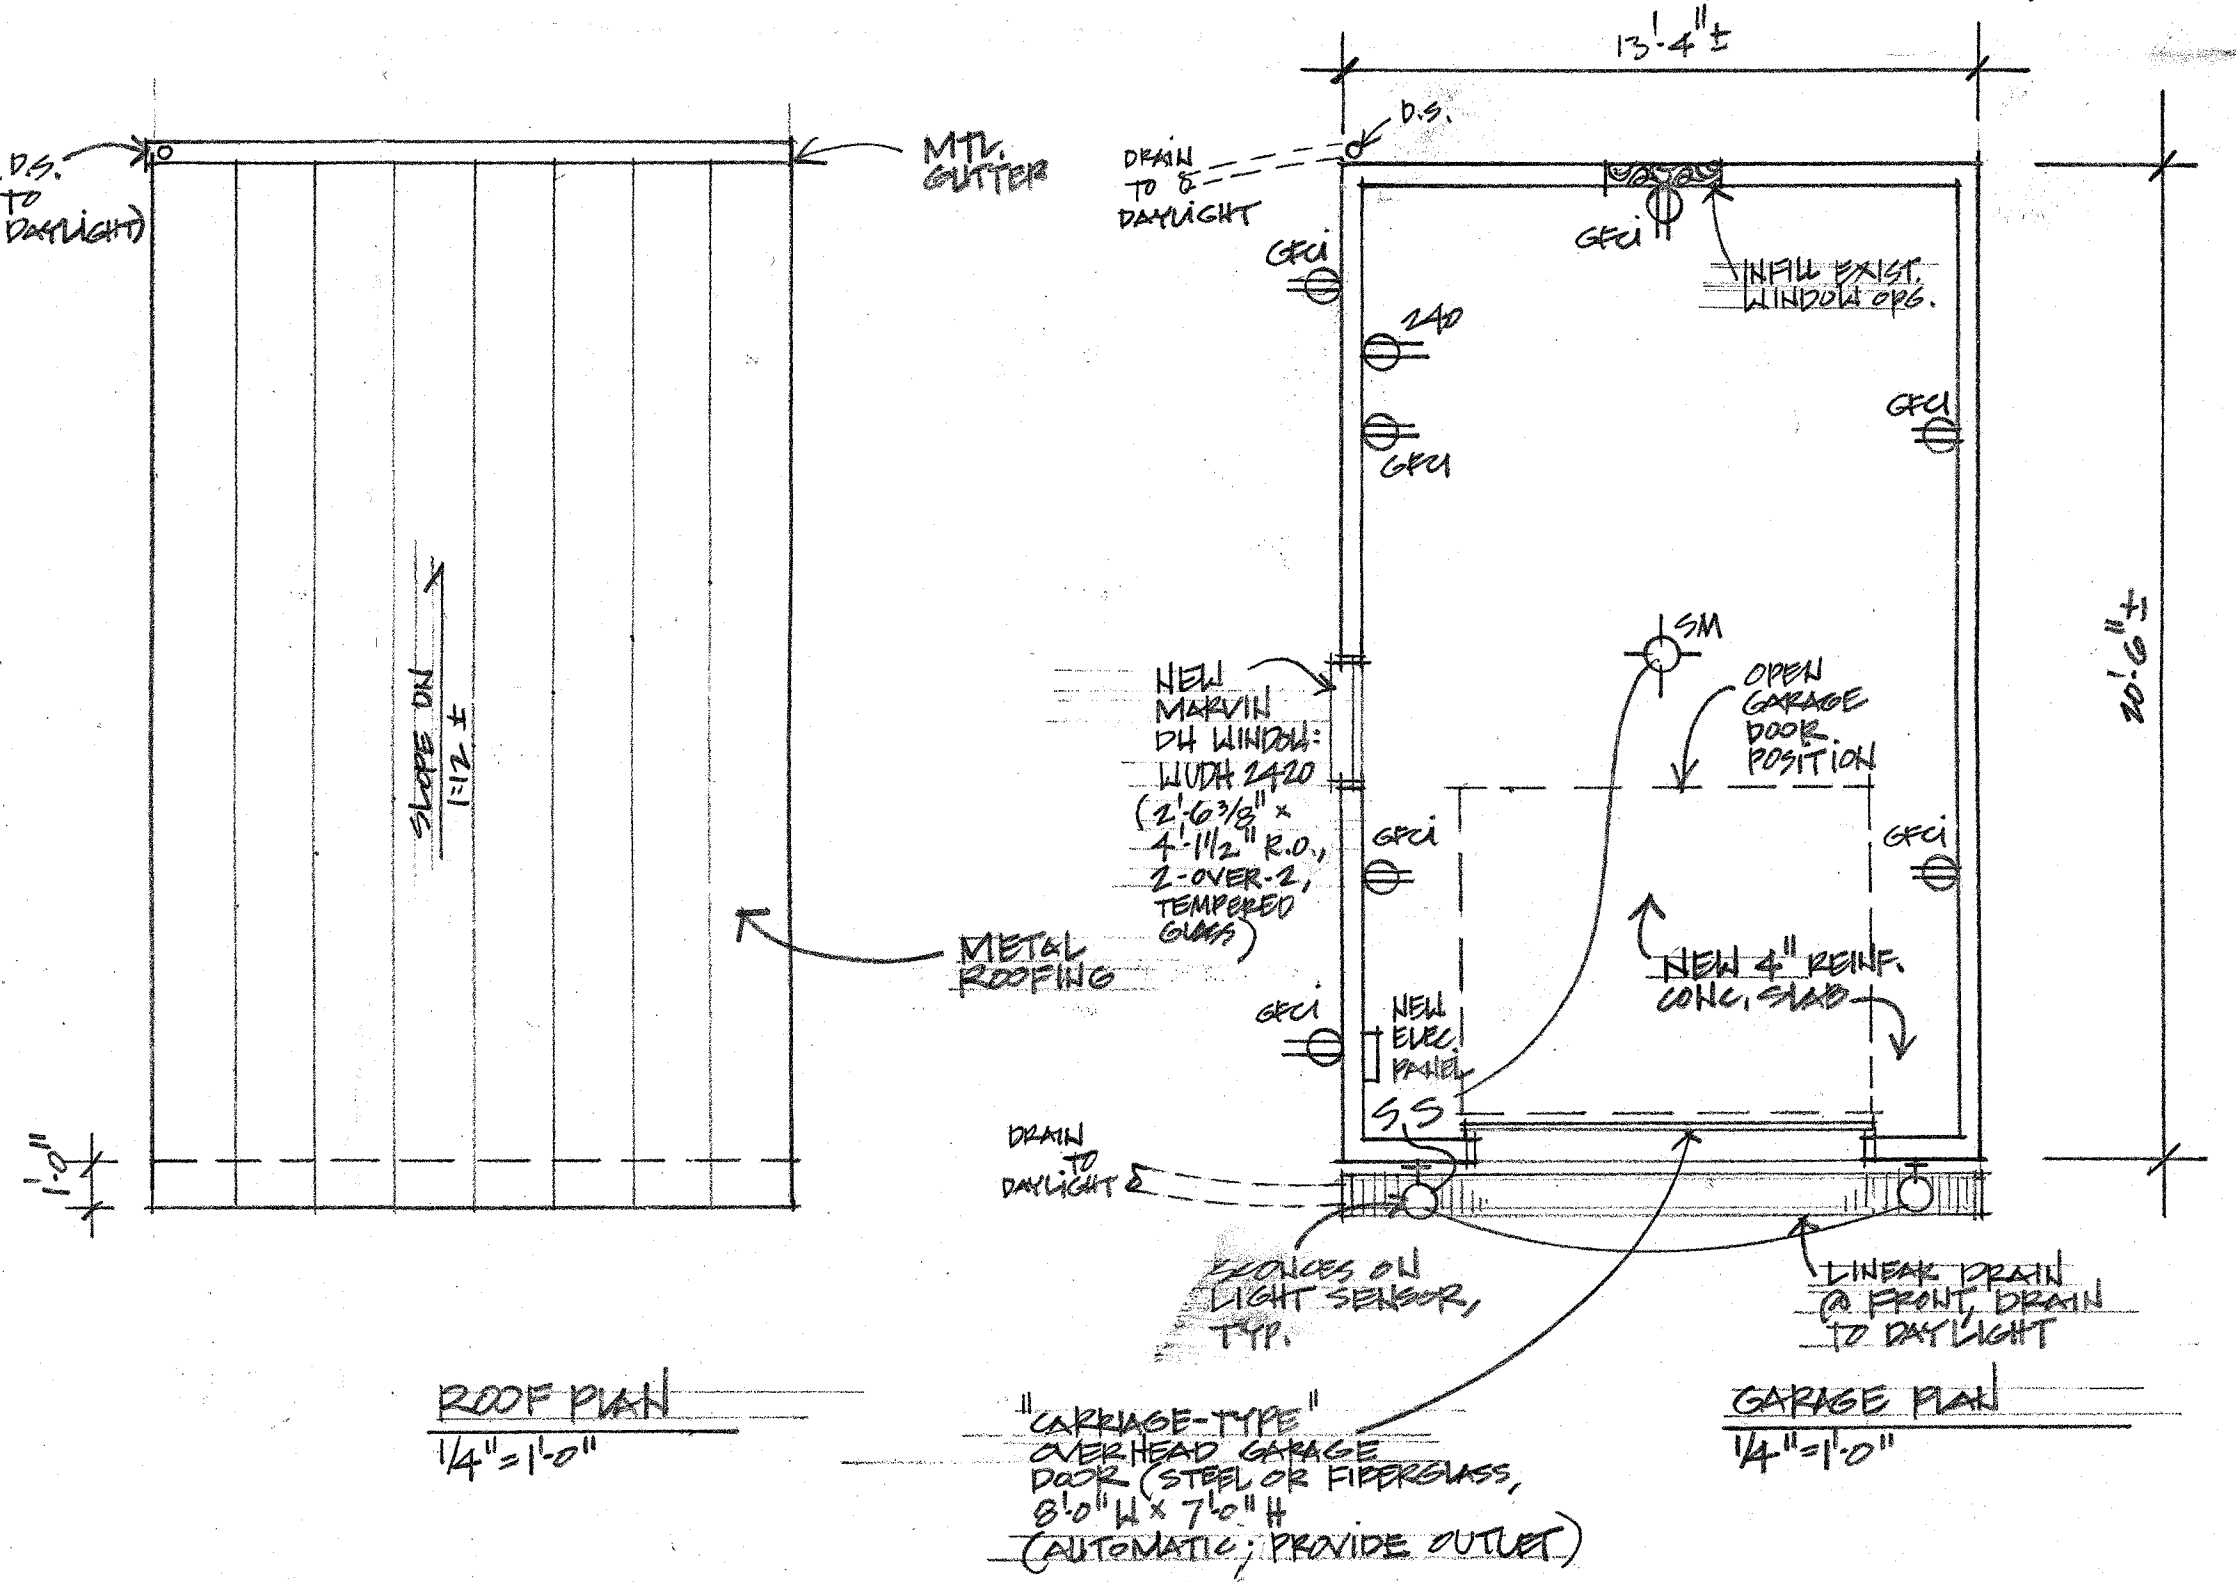 D.S.
TO
DAYLIGHT)
MTL.
GUTTER
SLOPE DN
1:12 ±
METAL
ROOFING
1'-0"
ROOF PLAN
1/4"=1'-0"
13'-4"±
D.S.
DRAIN
TO
DAYLIGHT
GFCI
GFCI
INFILL EXIST.
WINDOW OPG.
240
GFCI
GFCI
20'-6"±
SM
OPEN
GARAGE
DOOR
POSITION
NEW
MARVIN
DH WINDOW:
WUDH 2420
(2'-6 3/8" x
4'-1 1/2" R.O.,
2-OVER-2,
TEMPERED
GLASS)
GFCI
GFCI
NEW 4" REINF.
CONC. SLAB
GFCI
NEW
ELEC.
PANEL
S S
DRAIN
TO
DAYLIGHT
SCONCES ON
LIGHT SENSOR,
TYP.
LINEAR DRAIN
@ FRONT, DRAIN
TO DAYLIGHT
"CARRIAGE-TYPE"
OVERHEAD GARAGE
DOOR (STEEL OR FIBERGLASS,
8'-0" W x 7'-0" H
(AUTOMATIC; PROVIDE OUTLET)
GARAGE PLAN
1/4"=1'-0"